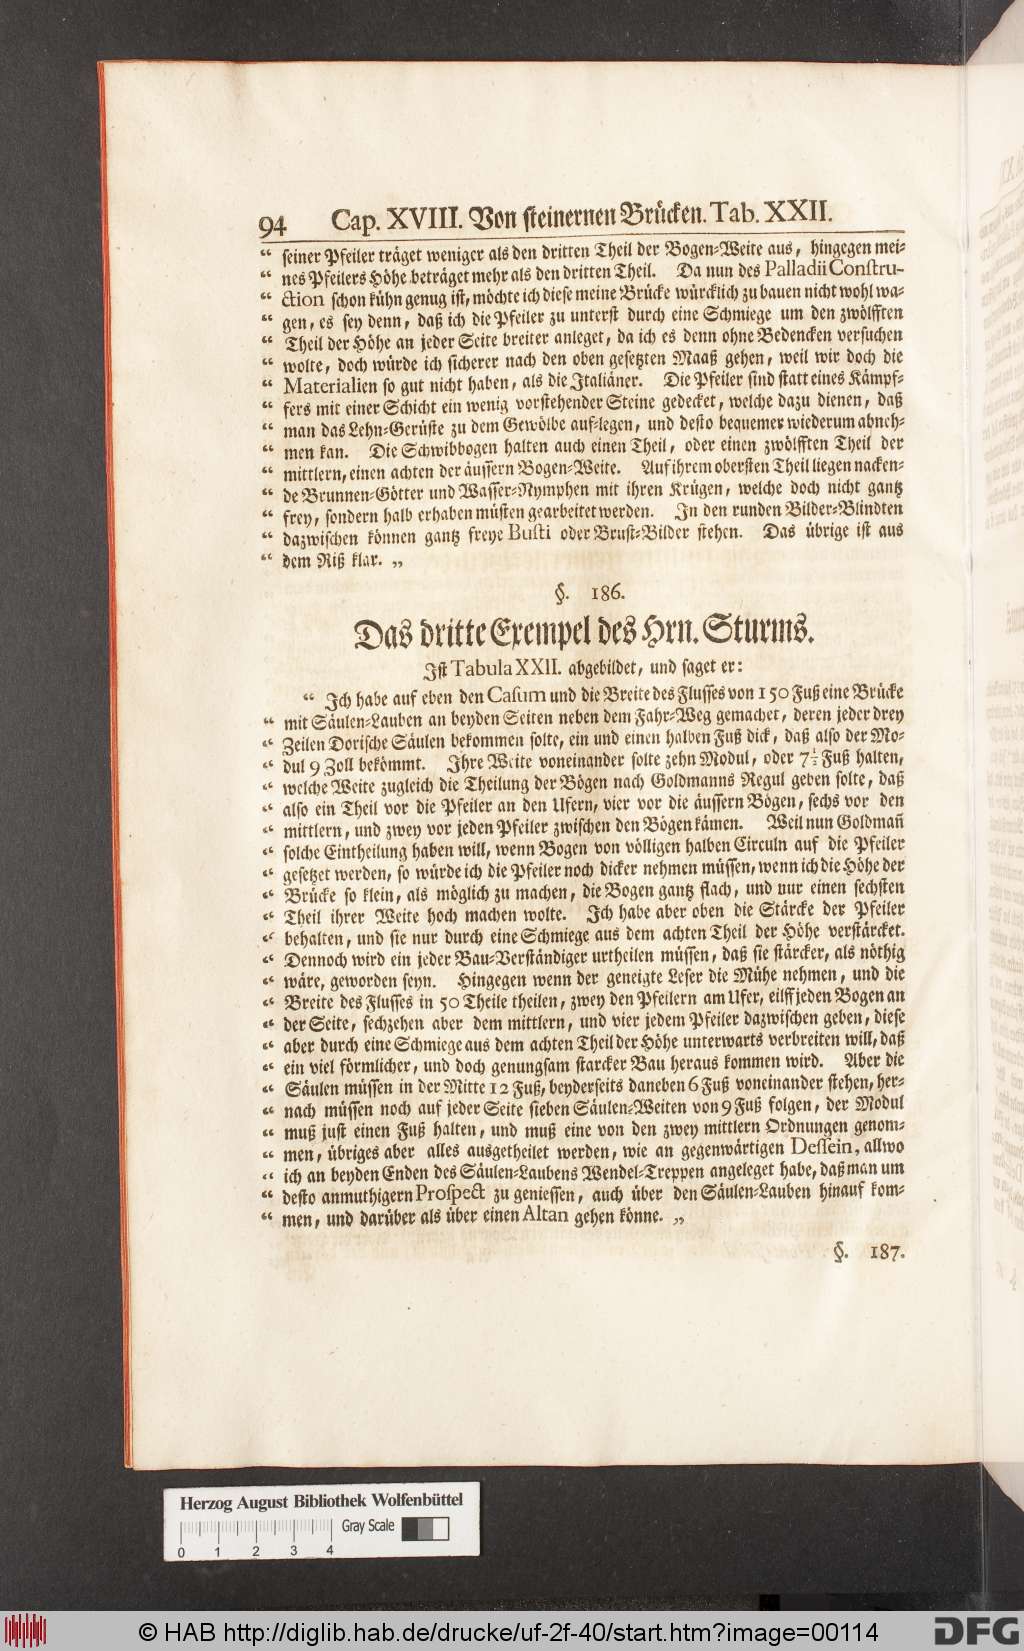 94 Cap. XVIII. Von steinernen Brücken. Tab. XXII.
“ seiner Pfeiler träget weniger als den dritten Theil der Bogen-Weite aus, hingegen mei-
“ nes Pfeilers Höhe beträget mehr als den dritten Theil. Da nun des Palladii Constru-
“ ction schon kühn genug ist, möchte ich diese meine Brücke würcklich zu bauen nicht wohl wa-
“ gen, es sey denn, daß ich die Pfeiler zu unterst durch eine Schmiege um den zwölfften
“ Theil der Höhe an jeder Seite breiter anleget, da ich es denn ohne Bedencken versuchen
“ wolte, doch würde ich sicherer nach den oben gesetzten Maaß gehen, weil wir doch die
“ Materialien so gut nicht haben, als die Italiäner. Die Pfeiler sind statt eines Kämpf-
“ fers mit einer Schicht ein wenig vorstehender Steine gedecket, welche dazu dienen, daß
“ man das Lehn-Gerüste zu dem Gewölbe auf-legen, und desto bequemer wiederum abneh-
“ men kan. Die Schwibbogen halten auch einen Theil, oder einen zwölfften Theil der
“ mittlern, einen achten der äussern Bogen-Weite. Auf ihrem obersten Theil liegen nacken-
“ de Brunnen-Götter und Wasser-Nymphen mit ihren Krügen, welche doch nicht gantz
“ frey, sondern halb erhaben müsten gearbeitet werden. In den runden Bilder-Blindten
“ dazwischen können gantz freye Busti oder Brust-Bilder stehen. Das übrige ist aus
“ dem Riß klar. „
§. 186.
Das dritte Exempel des Hrn. Sturms.
Ist Tabula XXII. abgebildet, und saget er:
“ Ich habe auf eben den Casum und die Breite des Flusses von 150 Fuß eine Brücke
“ mit Säulen-Lauben an beyden Seiten neben dem Fahr-Weg gemachet, deren jeder drey
“ Zeilen Dorische Säulen bekommen solte, ein und einen halben Fuß dick, daß also der Mo-
“ dul 9 Zoll bekömmt. Ihre Weite voneinander solte zehn Modul, oder 7½ Fuß halten,
“ welche Weite zugleich die Theilung der Bögen nach Goldmanns Regul geben solte, daß
“ also ein Theil vor die Pfeiler an den Ufern, vier vor die äussern Bögen, sechs vor den
“ mittlern, und zwey vor jeden Pfeiler zwischen den Bögen kämen. Weil nun Goldmañ
“ solche Eintheilung haben will, wenn Bogen von völligen halben Circuln auf die Pfeiler
“ gesetzet werden, so würde ich die Pfeiler noch dicker nehmen müssen, wenn ich die Höhe der
“ Brücke so klein, als möglich zu machen, die Bogen gantz flach, und nur einen sechsten
“ Theil ihrer Weite hoch machen wolte. Ich habe aber oben die Stärcke der Pfeiler
“ behalten, und sie nur durch eine Schmiege aus dem achten Theil der Höhe verstärcket.
“ Dennoch wird ein jeder Bau-Verständiger urtheilen müssen, daß sie stärcker, als nöthig
“ wäre, geworden seyn. Hingegen wenn der geneigte Leser die Mühe nehmen, und die
“ Breite des Flusses in 50 Theile theilen, zwey den Pfeilern am Ufer, eilff jeden Bogen an
“ der Seite, sechzehen aber dem mittlern, und vier jedem Pfeiler dazwischen geben, diese
“ aber durch eine Schmiege aus dem achten Theil der Höhe unterwarts verbreiten will, daß
“ ein viel förmlicher, und doch genungsam starcker Bau heraus kommen wird. Aber die
“ Säulen müssen in der Mitte 12 Fuß, beyderseits daneben 6 Fuß voneinander stehen, her-
“ nach müssen noch auf jeder Seite sieben Säulen-Weiten von 9 Fuß folgen, der Modul
“ muß just einen Fuß halten, und muß eine von den zwey mittlern Ordnungen genom-
“ men, übriges aber alles ausgetheilet werden, wie an gegenwärtigen Dessein, allwo
“ ich an beyden Enden des Säulen-Laubens Wendel-Treppen angeleget habe, daß man um
“ desto anmuthigern Prospect zu geniessen, auch über den Säulen-Lauben hinauf kom-
“ men, und darüber als über einen Altan gehen könne. „
§. 187.
Herzog August Bibliothek Wolfenbüttel
Gray Scale
0 1 2 3 4
© HAB http://diglib.hab.de/drucke/uf-2f-40/start.htm?image=00114
DFG